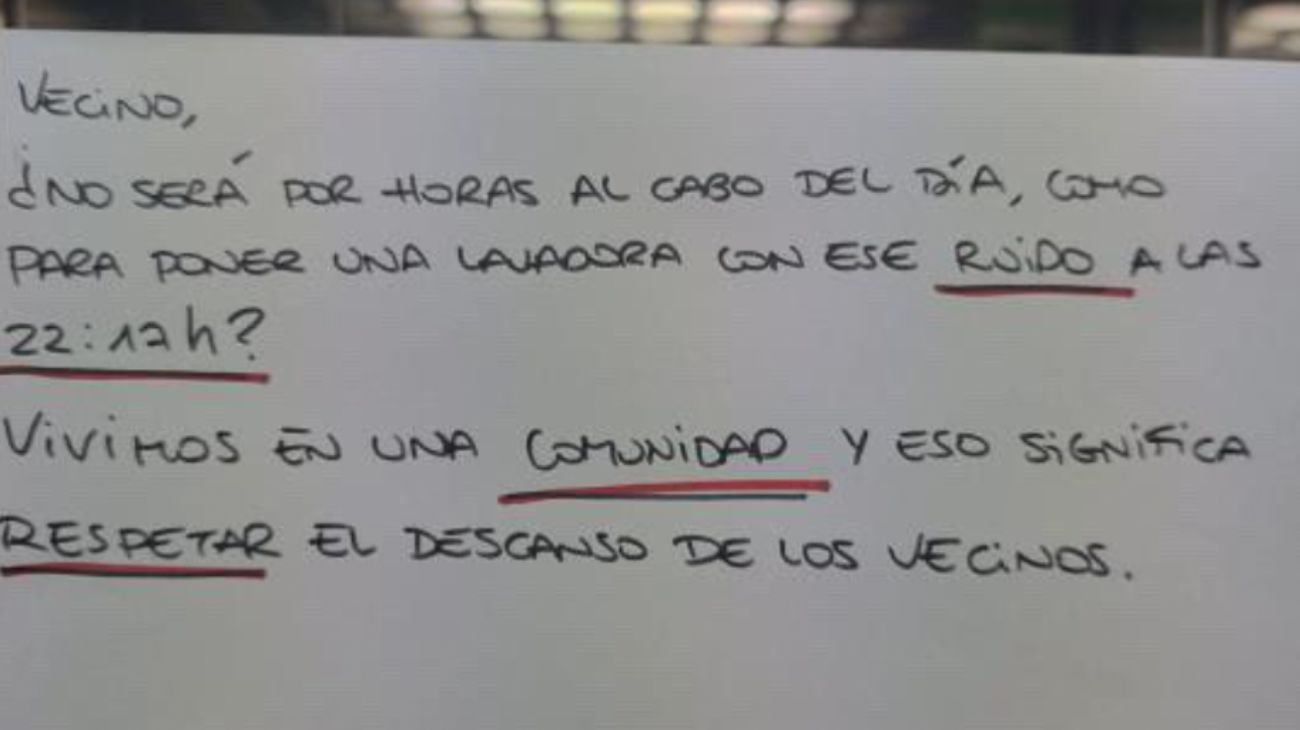 VECINO,
¿NO SERÁ POR HORAS AL CABO DEL DÍA, COMO
PARA PONER UNA LAVADORA CON ESE RUIDO A LAS
22:12h?
VIVIMOS EN UNA COMUNIDAD Y ESO SIGNIFICA
RESPETAR EL DESCANSO DE LOS VECINOS.